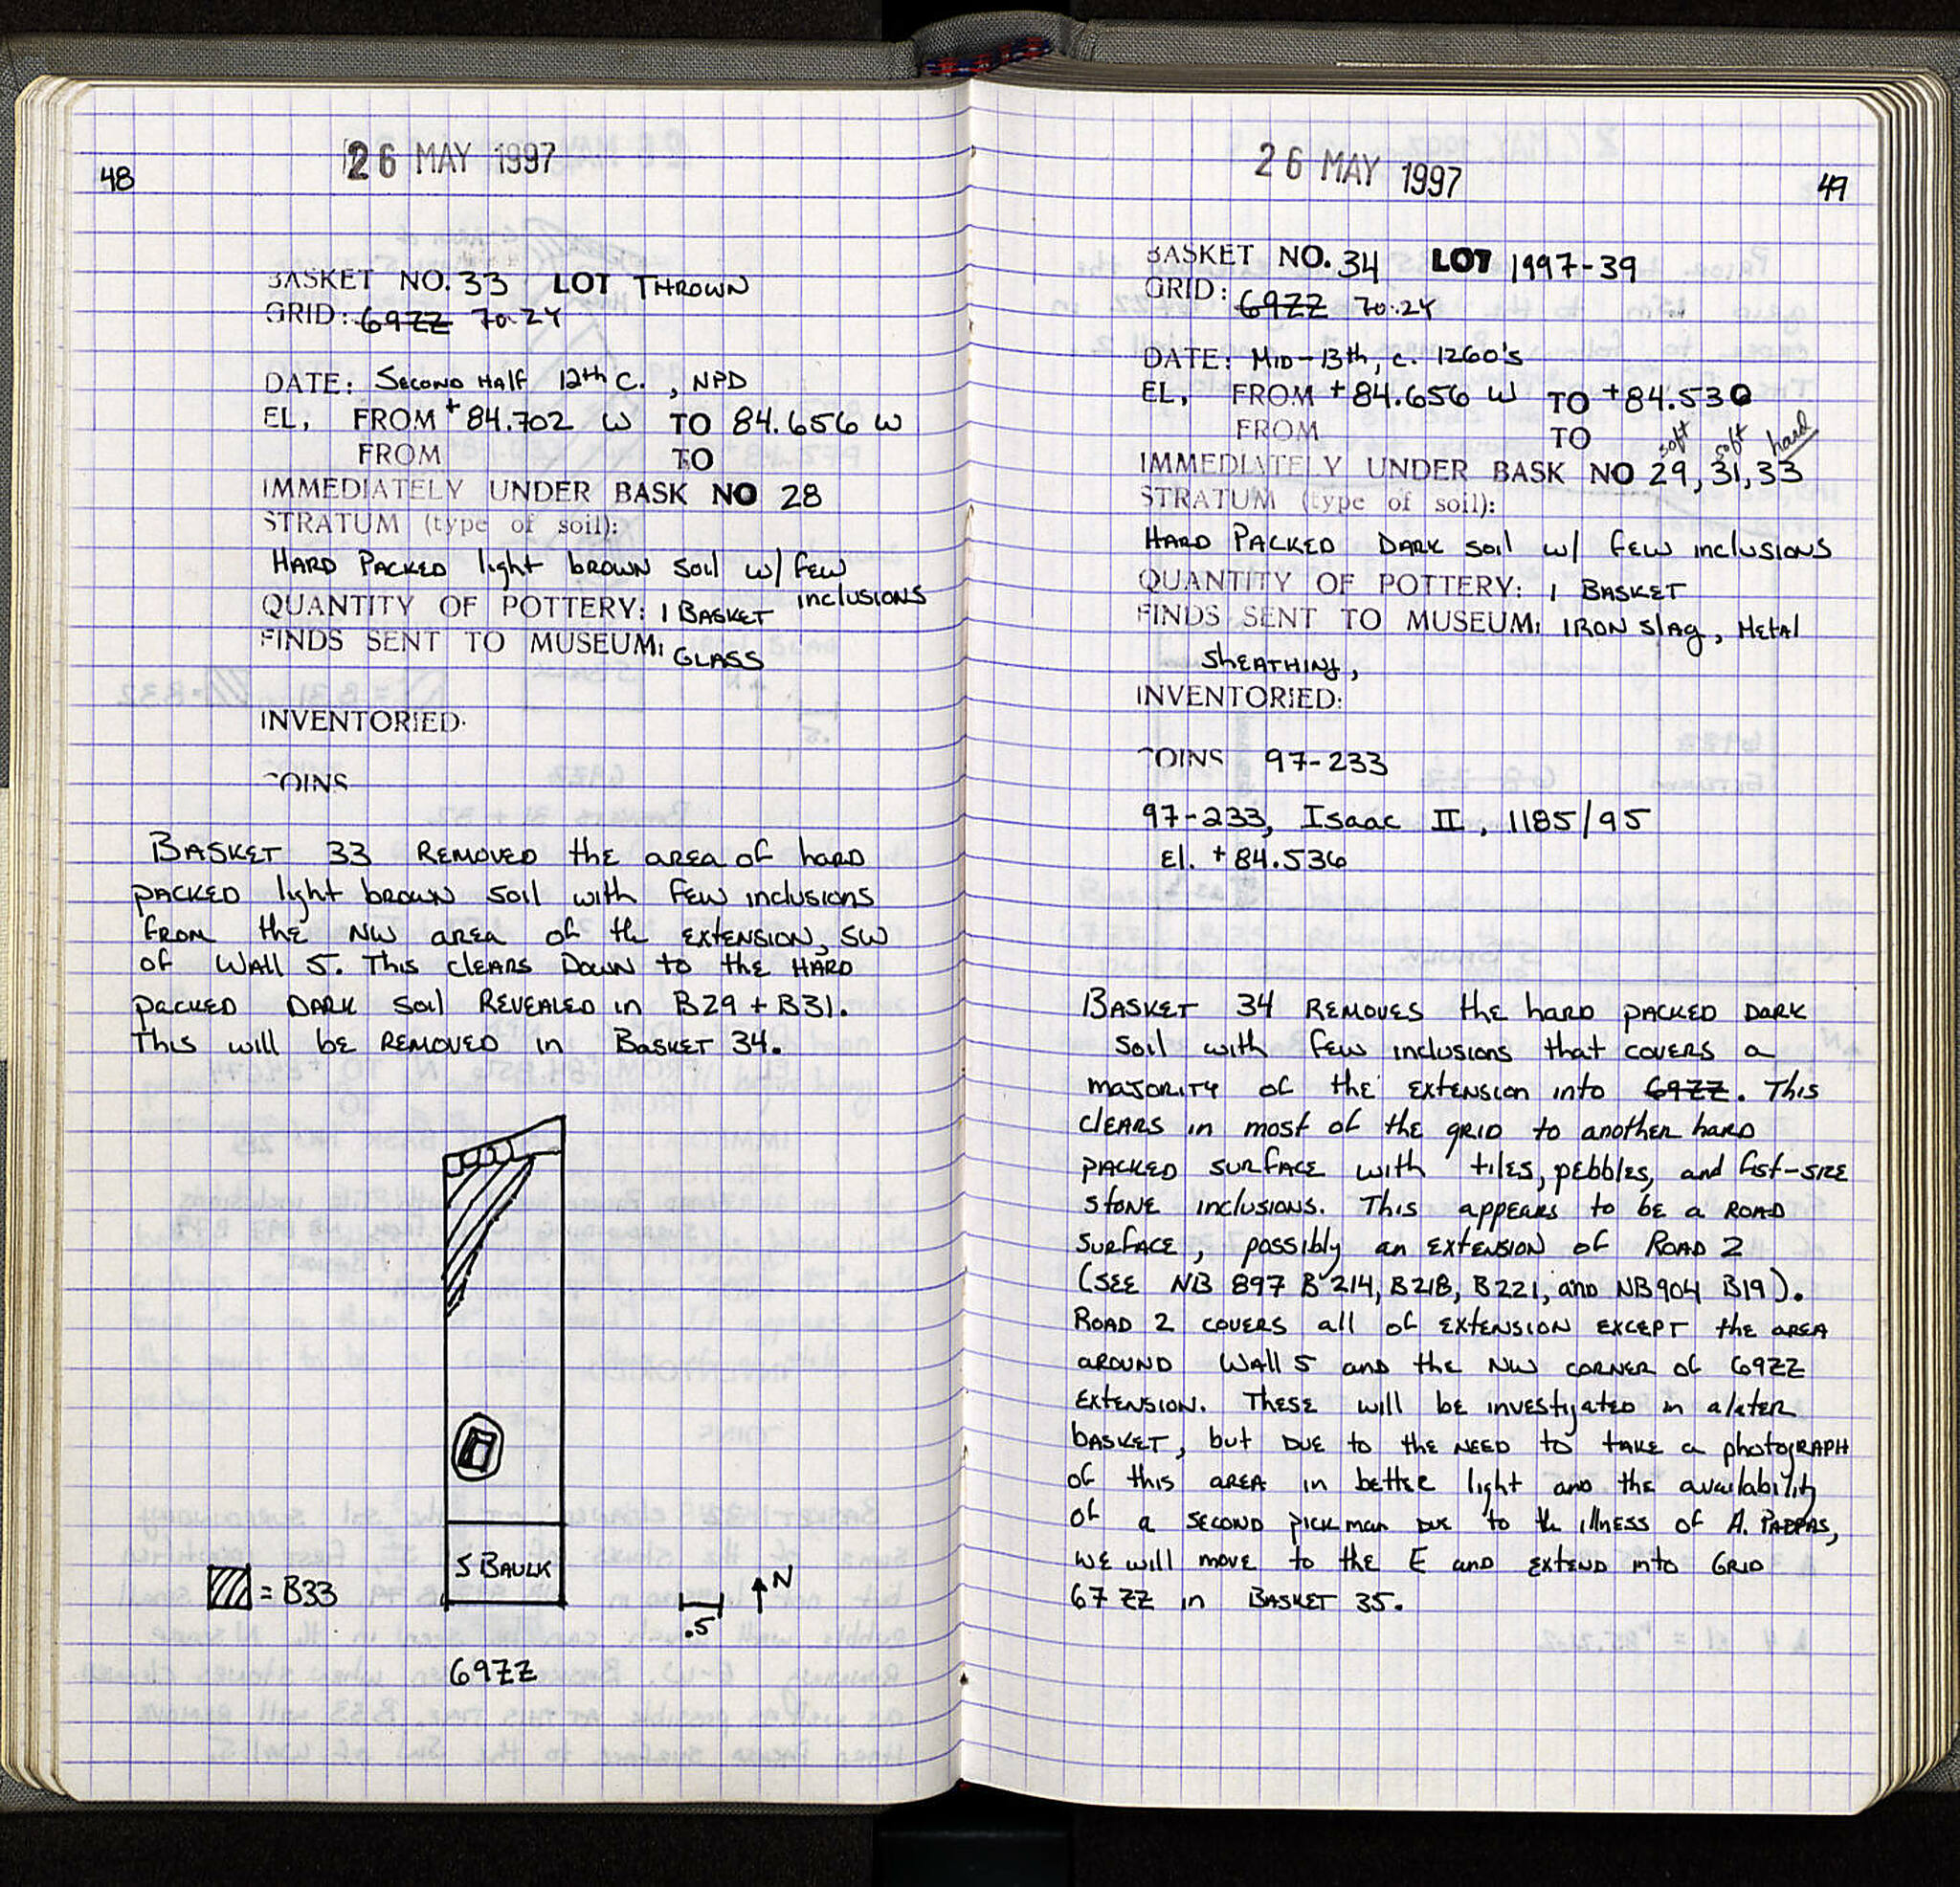 48
26 MAY 1997
BASKET NO. 33 LOT THROWN
GRID: 69ZZ 70.ZY
DATE: SECOND HALF 12th C. , NPD
EL, FROM +84.702 W TO 84.656 W
FROM TO
IMMEDIATELY UNDER BASK NO 28
STRATUM (type of soil):
HARD PACKED light BROWN Soil w/ few
inclusions
QUANTITY OF POTTERY: 1 BASKET
FINDS SENT TO MUSEUM: GLASS
INVENTORIED:
COINS
BASKET 33 REMOVED the AREA of hard
PACKED light BROWN Soil with few inclusions
from the NW AREA of the EXTENSION, SW
of WALL 5. This clears Down to the HARD
packed DARK Soil REVEALED in B29 + B31.
This will be REMOVED in BASKET 34.
S BAULK
= B33
.5
N
69ZZ
49
26 MAY 1997
BASKET NO. 34 LOT 1997-39
GRID: 69ZZ 70.ZY
DATE: MID-13th, c. 1260's
EL, FROM +84.656 W TO +84.530
FROM TO
soft soft hard
IMMEDIATELY UNDER BASK NO 29, 31, 33
STRATUM (type of soil):
HARD PACKED DARK Soil w/ few inclusions
QUANTITY OF POTTERY: 1 BASKET
FINDS SENT TO MUSEUM: IRON Slag, Metal
SHEATHING,
INVENTORIED:
COINS 97-233
97-233, Isaac II, 1185/95
El. +84.536
BASKET 34 REMOVES the hard PACKED DARK
Soil with few inclusions that covers a
MAJORITY of the EXTENSION into 69ZZ. This
clEARS in most of the grid to another hard
PACKED SURFACE with tiles, pebbles, and fist-size
stone inclusions. This appears to be a ROAD
surface, possibly an EXTENSION of ROAD 2
(SEE NB 897 B214, B218, B221, and NB904 B19).
ROAD 2 COVERS all of EXTENSION EXCEPT the AREA
AROUND WALL 5 and the NW CORNER of 69ZZ
EXTENSION. These will be investigated in a later
basket, but DUE to the NEED to take a photograph
of this AREA in better light and the availability
of a SECOND pickman DUE to the illness of A. PAPPAS,
we will move to the E and EXTEND into GRID
67 ZZ in BASKET 35.